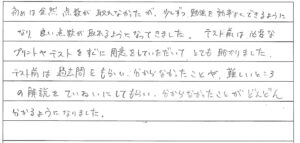 初めは全然点数が取れなかったが、少しずつ勉強を効率よくできるように
なり良い点数が取れるようになってきました。テスト前は必要な
プリントやテストをすぐに用意をしていただいてとても助かりました。
テスト前は過去問をもらい、分からなかったことや、難しいところ
の解説をていねいにしてもらい、分からなかったことがどんどん
分かるようになりました。